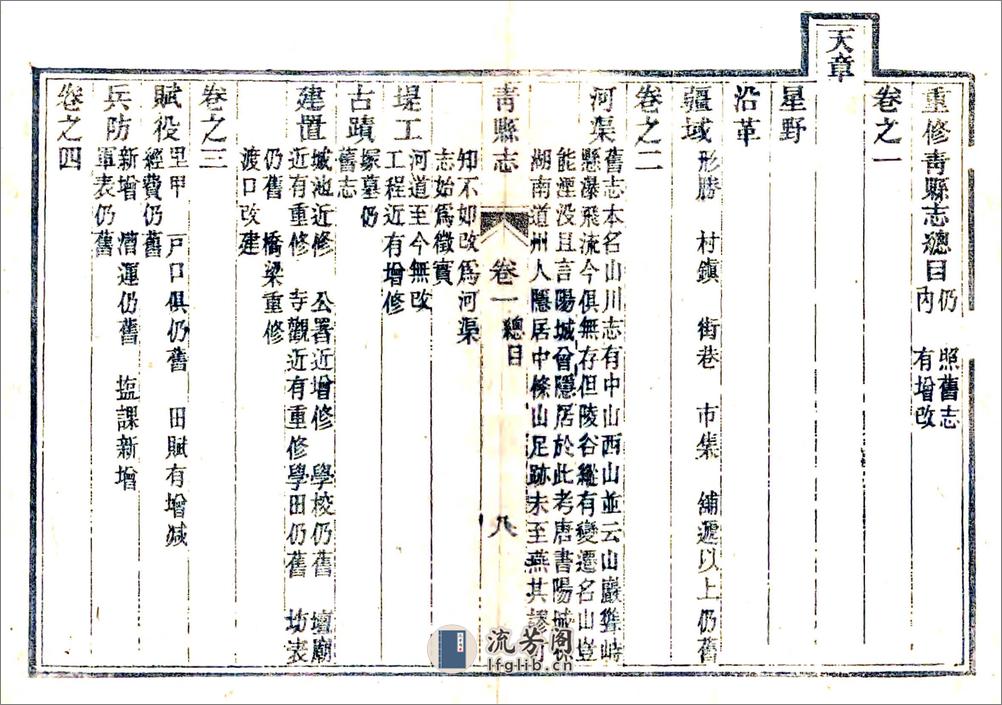 天章
重修青縣志總目仍照舊志
內有增改
卷之一
星野
沿革
疆域形勝 村鎮 街巷 市集 舖遞以上仍舊
卷之二
河渠舊志本名山川志有中山西山並云山巖聳峙
懸瀑飛流今俱無存但陵谷縱有變遷名山豈
能湮没且言陽城曾隱居於此考唐書陽城係
湖南道州人隱居中條山足跡未至燕其
青縣志 卷一 總目 八
知不如改爲河渠
志始爲徵實
堤工河道至今無改
工程近有增修
古蹟塚墓仍
舊志
建置城池近修 公署近增修 學校仍舊 壇廟
近有重修 寺觀近有重修學田仍舊 坊表
仍舊 橋梁重修
渡口改建
卷之三
賦役里甲 戸口俱仍舊 田賦有增減
經費仍舊
兵防新增 漕運仍舊 塩課新增
軍表仍舊
卷之四
流芳阁
lfglib.cn